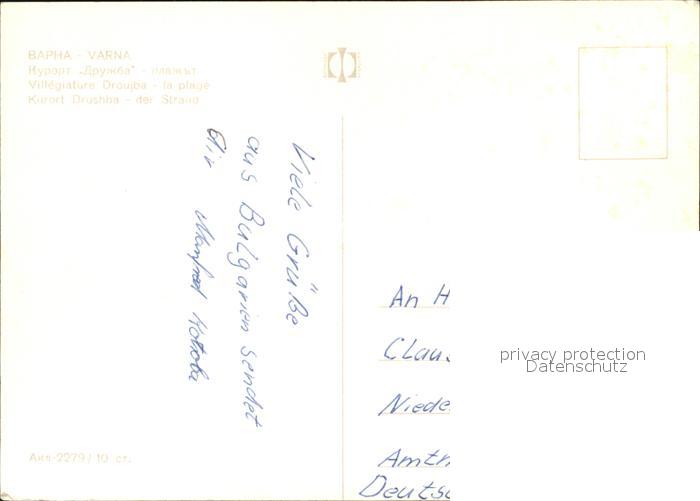 ВАРНА - VARNA
Курорт „Дружба" - плажът
Villégiature Droujba - la plage
Kurort Drushba - der Strand
Viele Grüße
aus Bulgarien sendet
Dir Manfred
An H
Clau
Niede
Amtn
Deutsc
privacy protection
Datenschutz
Акл-2279 / 10 ст.